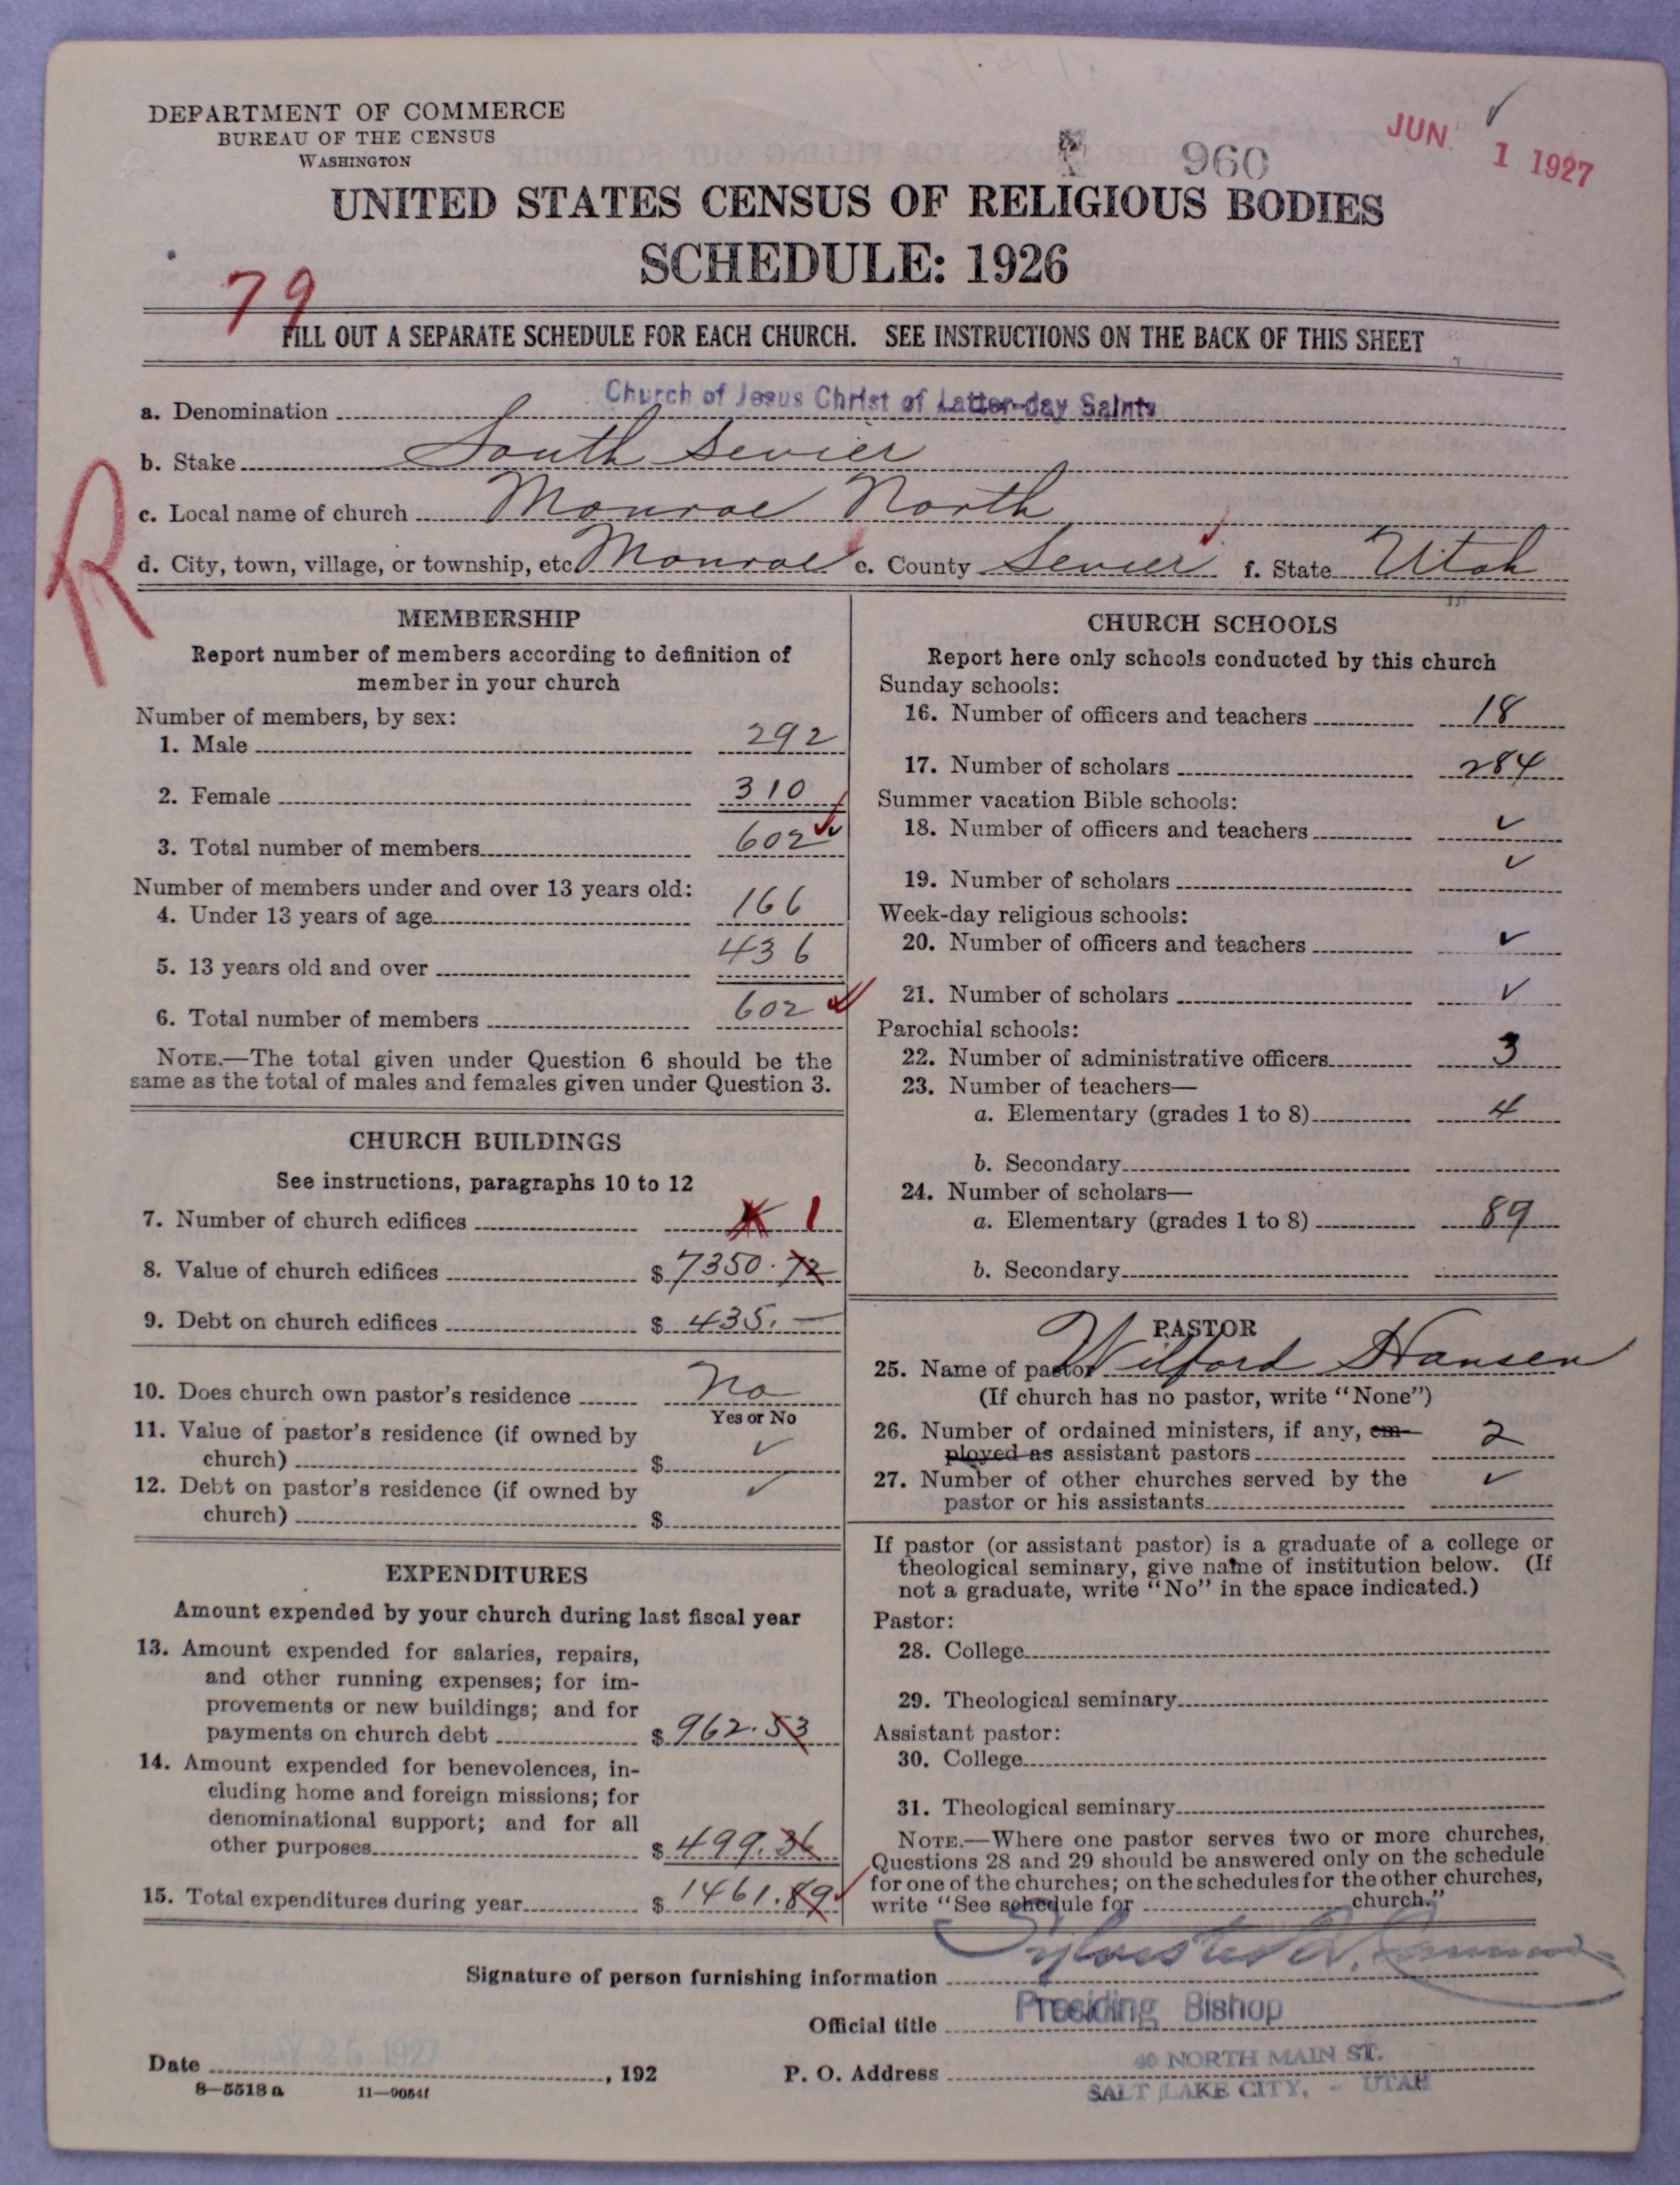 DEPARTMENT OF COMMERCE
BUREAU OF THE CENSUS
WASHINGTON
960
JUN 1 1927
UNITED STATES CENSUS OF RELIGIOUS BODIES
SCHEDULE: 1926
79
FILL OUT A SEPARATE SCHEDULE FOR EACH CHURCH. SEE INSTRUCTIONS ON THE BACK OF THIS SHEET
R
a. Denomination Church of Jesus Christ of Latter-day Saints
b. Stake South Sevier
c. Local name of church Monroe North
d. City, town, village, or township, etc. Monroe e. County Sevier f. State Utah
MEMBERSHIP
Report number of members according to definition of
member in your church
Number of members, by sex:
1. Male 292
2. Female 310
3. Total number of members 602
Number of members under and over 13 years old:
4. Under 13 years of age 166
5. 13 years old and over 436
6. Total number of members 602
NOTE.—The total given under Question 6 should be the
same as the total of males and females given under Question 3.
CHURCH BUILDINGS
See instructions, paragraphs 10 to 12
7. Number of church edifices 1
8. Value of church edifices $ 7350.72
9. Debt on church edifices $ 435.—
10. Does church own pastor's residence No
Yes or No
11. Value of pastor's residence (if owned by
church) $ ✓
12. Debt on pastor's residence (if owned by
church) $ ✓
EXPENDITURES
Amount expended by your church during last fiscal year
13. Amount expended for salaries, repairs,
and other running expenses; for im-
provements or new buildings; and for
payments on church debt $ 962.53
14. Amount expended for benevolences, in-
cluding home and foreign missions; for
denominational support; and for all
other purposes $ 499.36
15. Total expenditures during year $ 1461.89
CHURCH SCHOOLS
Report here only schools conducted by this church
Sunday schools:
16. Number of officers and teachers 18
17. Number of scholars 284
Summer vacation Bible schools:
18. Number of officers and teachers ✓
19. Number of scholars ✓
Week-day religious schools:
20. Number of officers and teachers ✓
21. Number of scholars ✓
Parochial schools:
22. Number of administrative officers 3
23. Number of teachers—
a. Elementary (grades 1 to 8) 4
b. Secondary
24. Number of scholars—
a. Elementary (grades 1 to 8) 89
b. Secondary
PASTOR
25. Name of pastor Wilford Hansen
(If church has no pastor, write "None")
26. Number of ordained ministers, if any, em-
ployed as assistant pastors 2
27. Number of other churches served by the
pastor or his assistants ✓
If pastor (or assistant pastor) is a graduate of a college or
theological seminary, give name of institution below. (If
not a graduate, write "No" in the space indicated.)
Pastor:
28. College
29. Theological seminary
Assistant pastor:
30. College
31. Theological seminary
NOTE.—Where one pastor serves two or more churches,
Questions 28 and 29 should be answered only on the schedule
for one of the churches; on the schedules for the other churches,
write "See schedule for church."
Signature of person furnishing information Sylvester Q. Cannon
Official title Presiding Bishop
Date MAY 25 1927, 192 P. O. Address 40 NORTH MAIN ST.
SALT LAKE CITY, - UTAH
8—5518 a 11—9054f